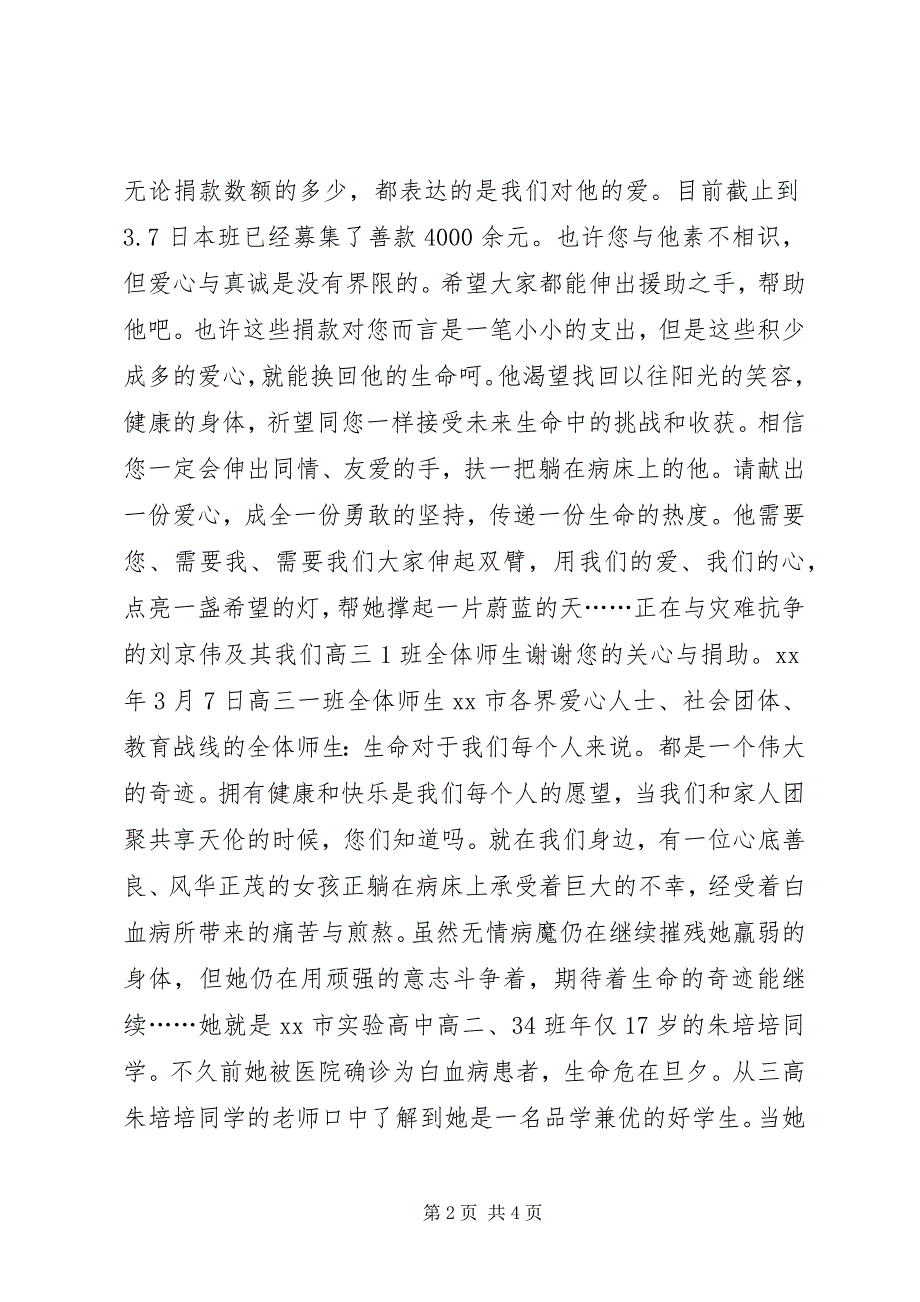 无论捐款数额的多少，都表达的是我们对他的爱。目前截止到
3.7 日本班已经募集了善款 4000 余元。也许您与他素不相识，
但爱心与真诚是没有界限的。希望大家都能伸出援助之手，帮助
他吧。也许这些捐款对您而言是一笔小小的支出，但是这些积少
成多的爱心，就能换回他的生命呵。他渴望找回以往阳光的笑容，
健康的身体，祈望同您一样接受未来生命中的挑战和收获。相信
您一定会伸出同情、友爱的手，扶一把躺在病床上的他。请献出
一份爱心，成全一份勇敢的坚持，传递一份生命的热度。他需要
您、需要我、需要我们大家伸起双臂，用我们的爱、我们的心，
点亮一盏希望的灯，帮她撑起一片蔚蓝的天……正在与灾难抗争
的刘京伟及其我们高三 1 班全体师生谢谢您的关心与捐助。xx
年 3 月 7 日高三一班全体师生 xx 市各界爱心人士、社会团体、
教育战线的全体师生：生命对于我们每个人来说。都是一个伟大
的奇迹。拥有健康和快乐是我们每个人的愿望，当我们和家人团
聚共享天伦的时候，您们知道吗。就在我们身边，有一位心底善
良、风华正茂的女孩正躺在病床上承受着巨大的不幸，经受着白
血病所带来的痛苦与煎熬。虽然无情病魔仍在继续摧残她羸弱的
身体，但她仍在用顽强的意志斗争着，期待着生命的奇迹能继
续……她就是 xx 市实验高中高二、34 班年仅 17 岁的朱培培同
学。不久前她被医院确诊为白血病患者，生命危在旦夕。从三高
朱培培同学的老师口中了解到她是一名品学兼优的好学生。当她
第 2 页 共 4 页